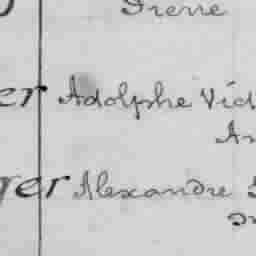 Irene
er Adolphe Vic
An
ger Alexandre